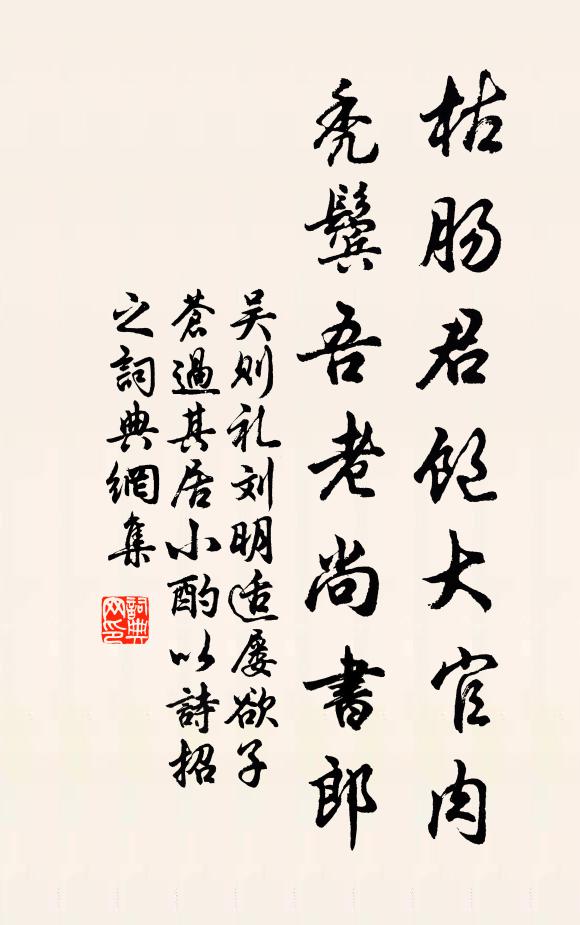 枯肠君饱大官肉
秃鬓吾老尚書郎
吴则礼刘明适屡欲子
蒼過其居小酌以詩招
之詞典網集
詞典网印